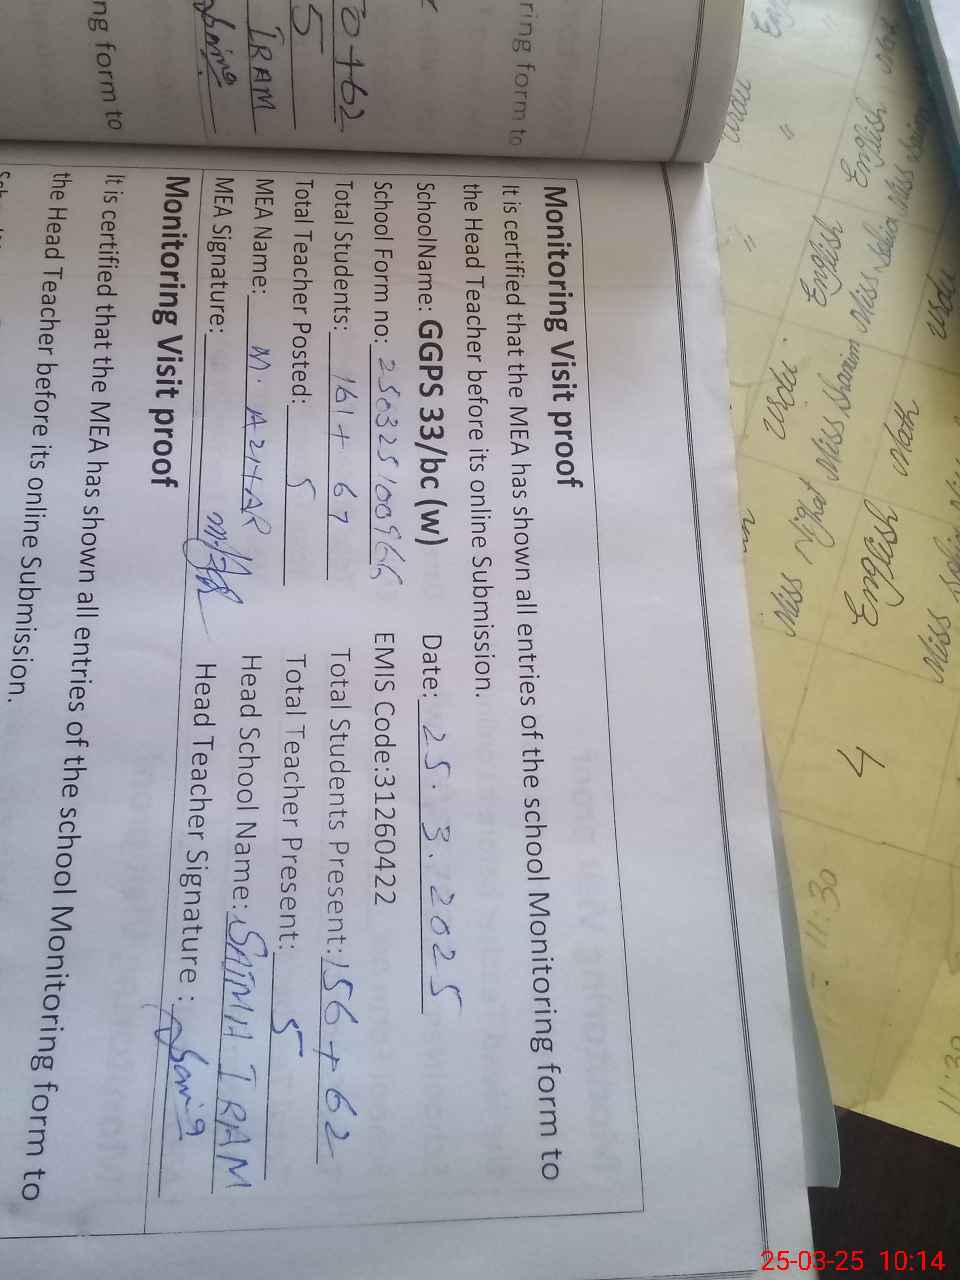 ring form to
0+62
5
IRAM
ng form to
Monitoring Visit proof
It is certified that the MEA has shown all entries of the school Monitoring form to
the Head Teacher before its online Submission.
SchoolName: GGPS 33/bc (w) Date: 25.3.2025
School Form no: 250325100966 EMIS Code:31260422
Total Students: 161+ 67 Total Students Present: 156+62
Total Teacher Posted: 5 Total Teacher Present: 5
MEA Name: M. AZHAR Head School Name: SAIMA IRAM
MEA Signature: Head Teacher Signature :
Monitoring Visit proof
It is certified that the MEA has shown all entries of the school Monitoring form to
the Head Teacher before its online Submission.
English
English
Urdu
Math
Urdu
English
Miss
4
11:30
11:30
25-03-25 10:14